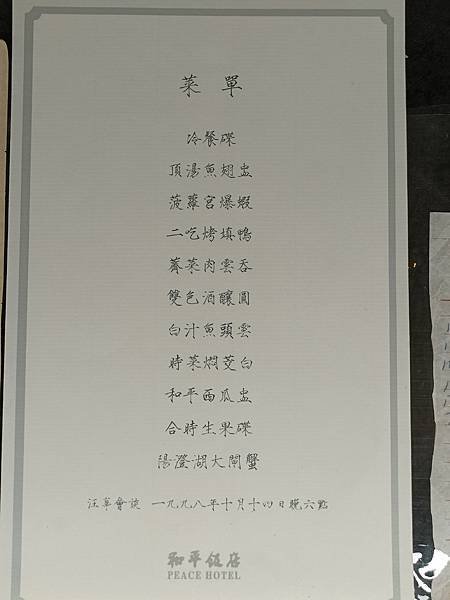 菜單
冷餐碟
頂湯魚翅盅
菠蘿宮爆蝦
二吃烤填鴨
薺菜肉雲吞
雙色酒釀圓
白汁魚頭雲
時菜焖茭白
和平西瓜盅
合時生果碟
陽澄湖大閘蟹
汪辜會談 一九九八年十月十四日晚六點
和平飯店
PEACE HOTEL